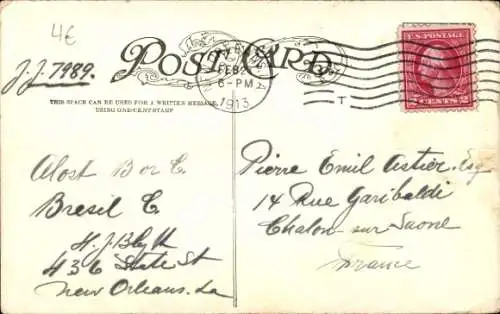 4€
J.J. 7989.
POST CARD
FEB 2
6-PM
1913
U.S. POSTAGE
2 CENTS 2
THIS SPACE CAN BE USED FOR A WRITTEN MESSAGE,
USING ONE-CENT STAMP
Alost B or C.
Bresil C.
H. J. Blyth
436 State St
New Orleans. La
Pierre Emil Astier. Esq
14 Rue Garibaldi
Chalon-sur-Saone
France
T